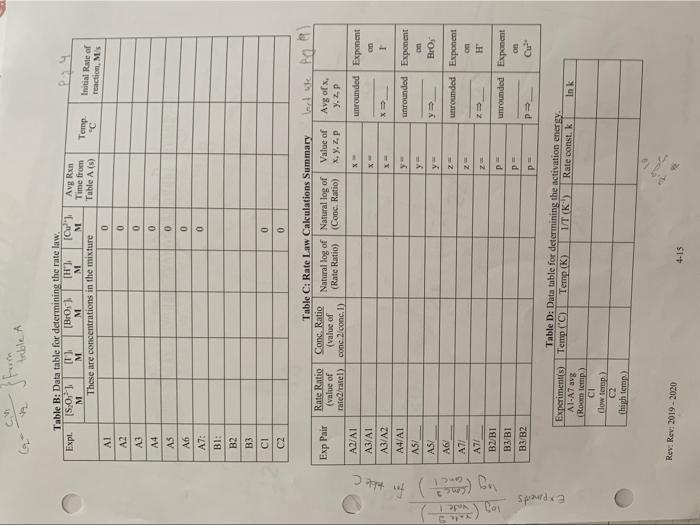 C₂ = C₁V₁ / V₂ } from table A
Pg 4
Table B: Data table for determining the rate law.
Expt. [S₂O₃²⁻]ᵢ M [I⁻]ᵢ M [BrO₃⁻]ᵢ M [H⁺]ᵢ M [Cu²⁺]ᵢ M Avg Rxn Time from Table A (s) Temp. °C Initial Rate of reaction, M/s
These are concentrations in the mixture
A1 0
A2 0
A3 0
A4 0
A5 0
A6 0
A7: 0
B1:
B2
B3
C1 0
C2 0
Table C: Rate Law Calculations Summary
Exp Pair Rate Ratio (value of rate2/rate1) Conc. Ratio (value of conc.2/conc.1) Natural log of (Rate Ratio) Natural log of (Conc. Ratio) Value of x, y, z, p Avg of x, y, z, p
A2/A1 x = unrounded Exponent on I⁻
A3/A1 x =
A3/A2 x = x ⇒
A4/A1 y = unrounded Exponent on BrO₃⁻
A5/ y =
A5/ y = y ⇒
A6/ z = unrounded Exponent on H⁺
A7/ z =
A7/ z = z ⇒
B2/B1 p = unrounded Exponent on Cu²⁺
B3/B1 p =
B3/B2 p = p ⇒
Exponents
log (rate 2 / rate 1)
log (conc 2 / conc 1)
for table C
Table D: Data table for determining the activation energy.
Experiment(s) Temp (˚C) Temp (K) 1/T (K⁻¹) Rate const. k ln k
A1-A7 avg (Room temp.)
C1 (low temp.)
C2 (high temp.)
Rev: Rev: 2019 - 2020
4-15